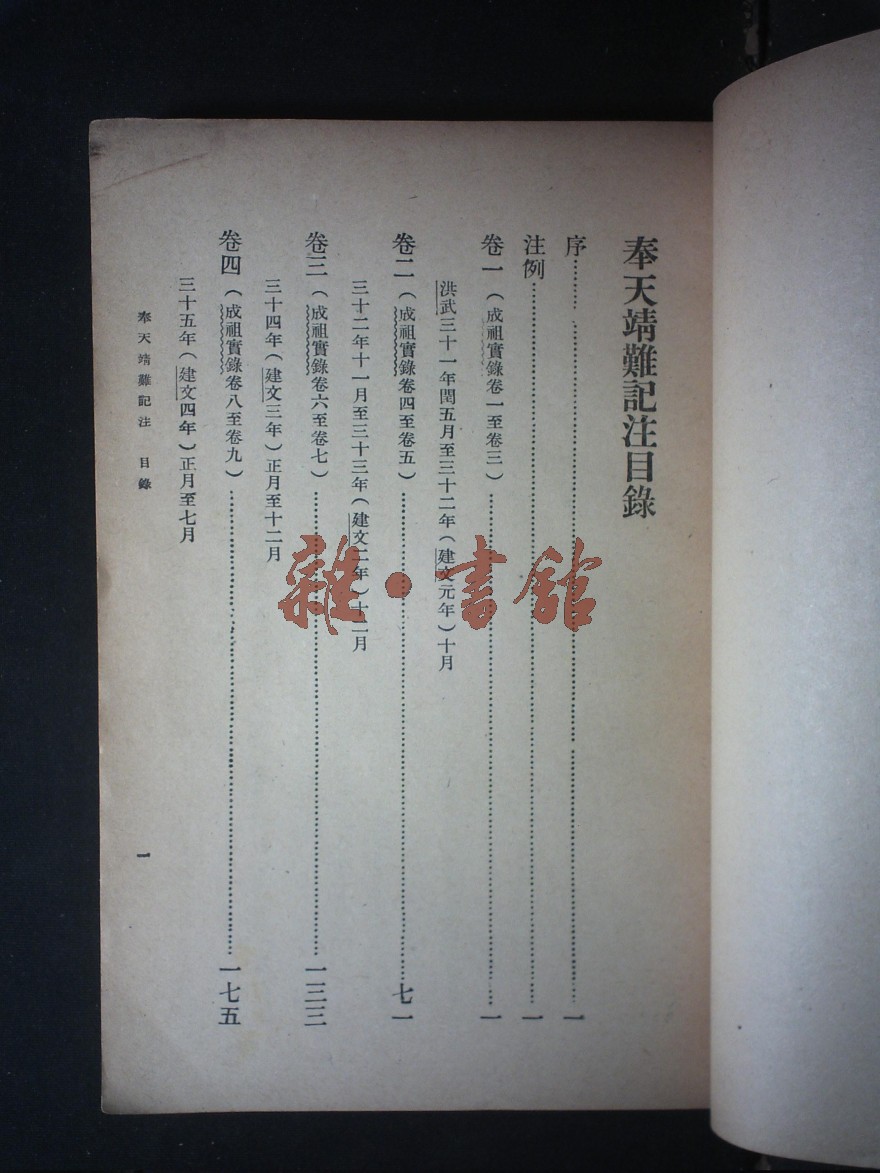 奉天靖難記注目錄
序……………………一
注例……………………一
卷一（成祖實錄卷一至卷三）……………………一
洪武三十一年閏五月至三十二年（建文元年）十月
卷二（成祖實錄卷四至卷五）……………………七一
三十二年十一月至三十三年（建文二年）十二月
卷三（成祖實錄卷六至卷七）……………………一三三
三十四年（建文三年）正月至十二月
卷四（成祖實錄卷八至卷九）……………………一七五
三十五年（建文四年）正月至七月
奉天靖難記注 目錄
一
雜・書館